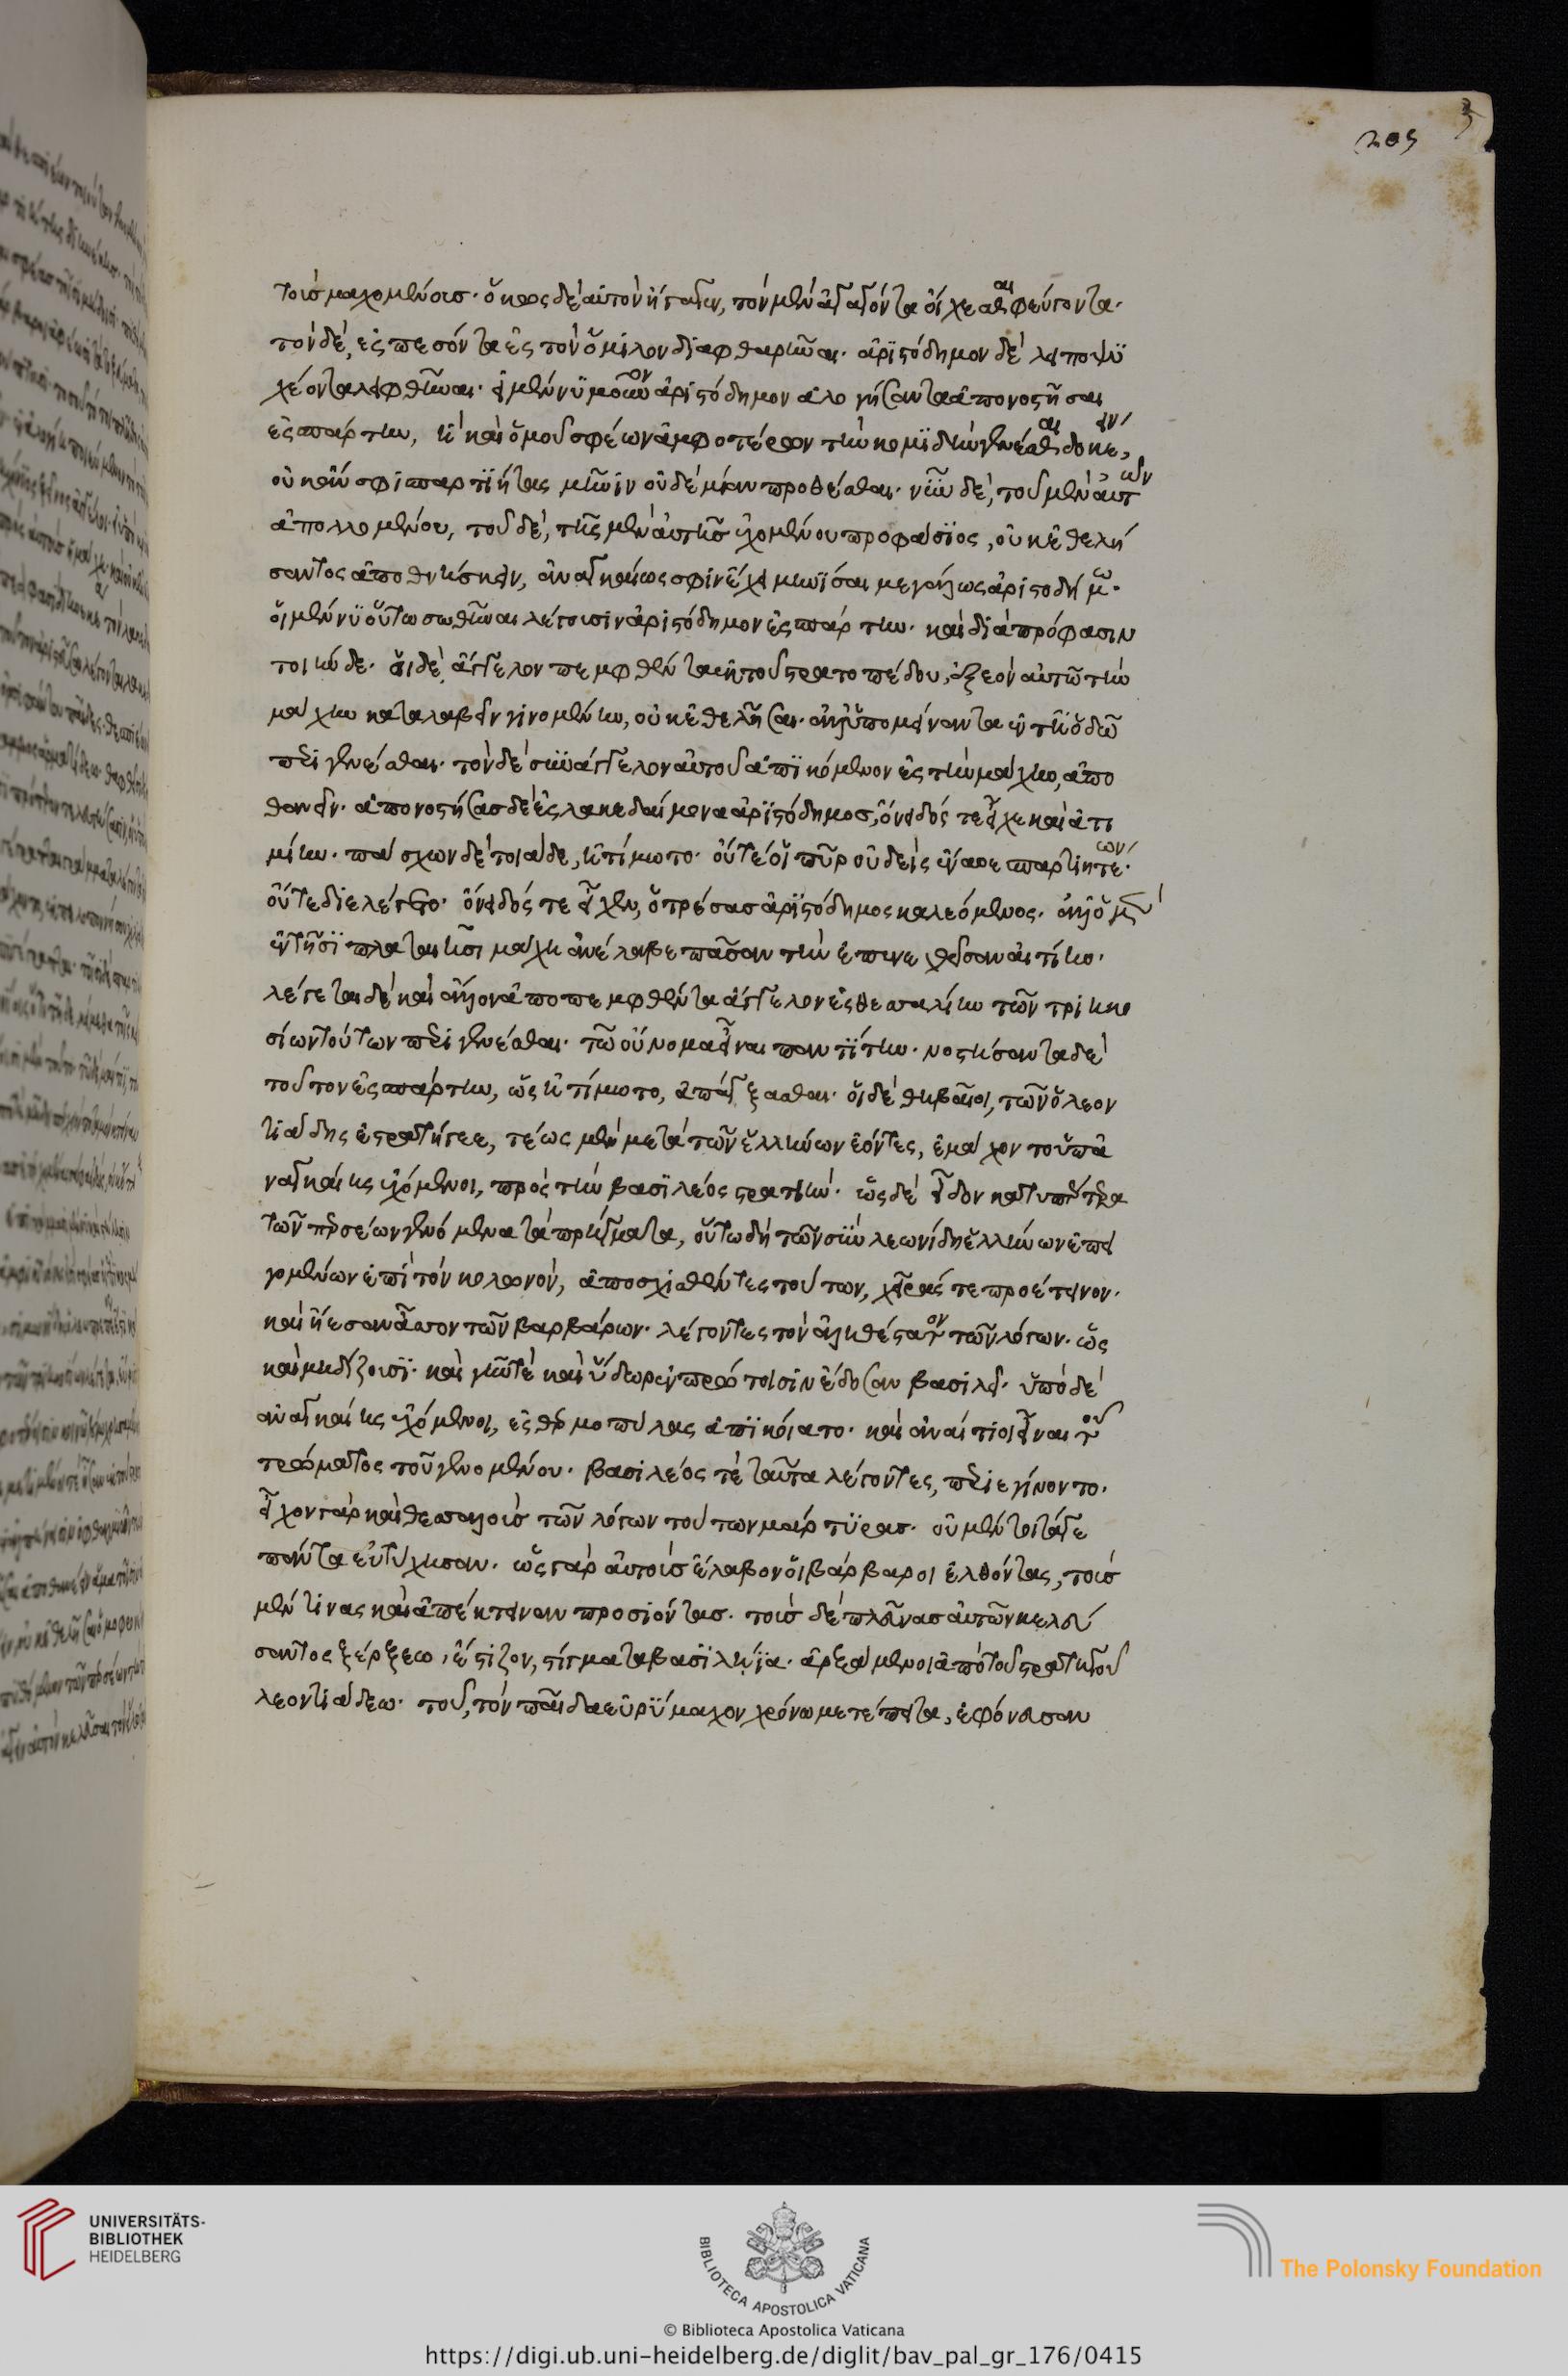 205
τοὺς μαχομένους· ὅκως δὲ αὐτὸν ἤγαγεν, τὸν μὲν ἀγαγόντα οἴχεσθαι φεύγοντα·
τὸν δὲ, ἐσπεσόντα ἐς τὸν ὅμιλον διαφθαρῆναι· ἀριστόδημον δὲ λειποψυ
χέοντα λειφθῆναι· εἰ μέν νυ μοῦνον ἀριστόδημον ἀλογήσαντα ἀπονοστῆσαι
ἐς σπάρτην, ἢ καὶ ὁμοῦ σφέων ἀμφοτέρων τὴν κομιδὴν γενέσθαι, δοκέειν
οὐκ ἄν σφι σπαρτιήτας μῆνιν οὐδεμίαν προσθέσθαι· νῦν δὲ, τοῦ μὲν αὐτῶν
ἀπολλομένου, τοῦ δὲ, τῆς μὲν αὐτῆς ἐχομένου προφάσιος, οὐκ ἐθελή
σαντος ἀποθνήσκειν, ἀναγκαίως σφιν ἔχει μηνῖσαι μεγάλως ἀριστοδήμω·
οἱ μέν νυ οὕτω σωθῆναι λέγουσιν ἀριστόδημον ἐς σπάρτην· καὶ διὰ πρόφασιν
τοιήνδε· οἱ δὲ, ἄγγελον πεμφθέντα ἐκ τοῦ στρατοπέδου, ἐξεὸν αὐτῶ τὴν
μάχην καταλαβεῖν γινομένην, οὐκ ἐθελῆσαι· ἀλλ' ὑπομείναντα ἐν τῆ ὁδῶ
περιγενέσθαι· τὸν δὲ συνάγγελον αὐτοῦ ἀπικόμενον ἐς τὴν μάχην, ἀπο
θανεῖν· ἀπονοστήσας δὲ ἐς λακεδαίμονα ἀριστόδημος, ὄνειδός τε εἶχε καὶ ἀτι
μίην· πάσχων δὲ τοιάδε, ἠτίμωτο· οὔτε οἱ πῦρ οὐδεὶς ἔναυε σπαρτιητέων·
οὔτε διελέγετο· ὄνειδός τε εἶχεν, ὁ τρέσας ἀριστόδημος καλεόμενος· ἀλλ' ὁ μὲν
ἐν τῆσι πλαταιῆσι μάχη ἀνέλαβε πᾶσαν τὴν ἐπενεχθεῖσαν αἰτίην·
λέγεται δὲ καὶ ἄλλον ἀποπεμφθέντα ἄγγελον ἐς θεσσαλίην τῶν τριηκο
σίων τούτων περιγενέσθαι· τῶ οὔνομα εἶναι παντίτην· νοστήσαντα δὲ
τοῦτον ἐς σπάρτην, ὡς ἠτίμωτο, ἀπάγξασθαι· οἱ δὲ θηβαῖοι, τῶν ὁ λεον
τιάδης ἐστρατήγεε, τέως μὲν μετὰ τῶν ἑλλήνων ἐόντες, ἐμάχοντο ὑπ' ἀ
ναγκαίης ἐχόμενοι, πρὸς τὴν βασιλέος στρατιήν· ὡς δὲ εἶδον κατυπέρτερα
τῶν περσέων γενόμενα τὰ πρήγματα, οὕτω δὴ τῶν σὺν λεωνίδη ἑλλήνων ἐπει
γομένων ἐπὶ τὸν κολωνὸν, ἀποσχισθέντες τούτων, χεῖράς τε προέτεινον·
καὶ ἤεσαν ἆσσον τῶν βαρβάρων· λέγοντες τὸν ἀληθέστατον τῶν λόγων· ὡς
καὶ μηδίζουσι· καὶ γῆν τε καὶ ὕδωρ ἐν πρώτοισιν ἔδοσαν βασιλεῖ· ὑπὸ δὲ
ἀναγκαίης ἐχόμενοι, ἐς θερμοπύλας ἀπικοίατο· καὶ ἀναίτιοι εἶναι τοῦ
τρώματος τοῦ γενομένου· βασιλέος τε ταῦτα λέγοντες, περιεγίνοντο·
εἶχον γὰρ καὶ θεσσαλοὺς τῶν λόγων τούτων μάρτυρας· οὐ μέντοι τά γε
πάντα εὐτύχησαν· ὡς γὰρ αὐτοὺς ἔλαβον οἱ βάρβαροι ἐλθόντας, τοὺς
μέν τινας καὶ ἀπέκτειναν προσιόντας· τοὺς δὲ πλεῦνας αὐτῶν κελεύ
σαντος ξέρξεω, ἔστιζον, στίγματα βασιλήια· ἀρξάμενοι ἀπὸ τοῦ στρατηγοῦ
λεοντιάδεω· τοῦ, τὸν παῖδα εὐρύμαχον χρόνω μετέπειτα, ἐφόνευσαν
UNIVERSITÄTS-
BIBLIOTHEK
HEIDELBERG
BIBLIOTECA APOSTOLICA VATICANA
© Biblioteca Apostolica Vaticana
The Polonsky Foundation
https://digi.ub.uni-heidelberg.de/diglit/bav_pal_gr_176/0415